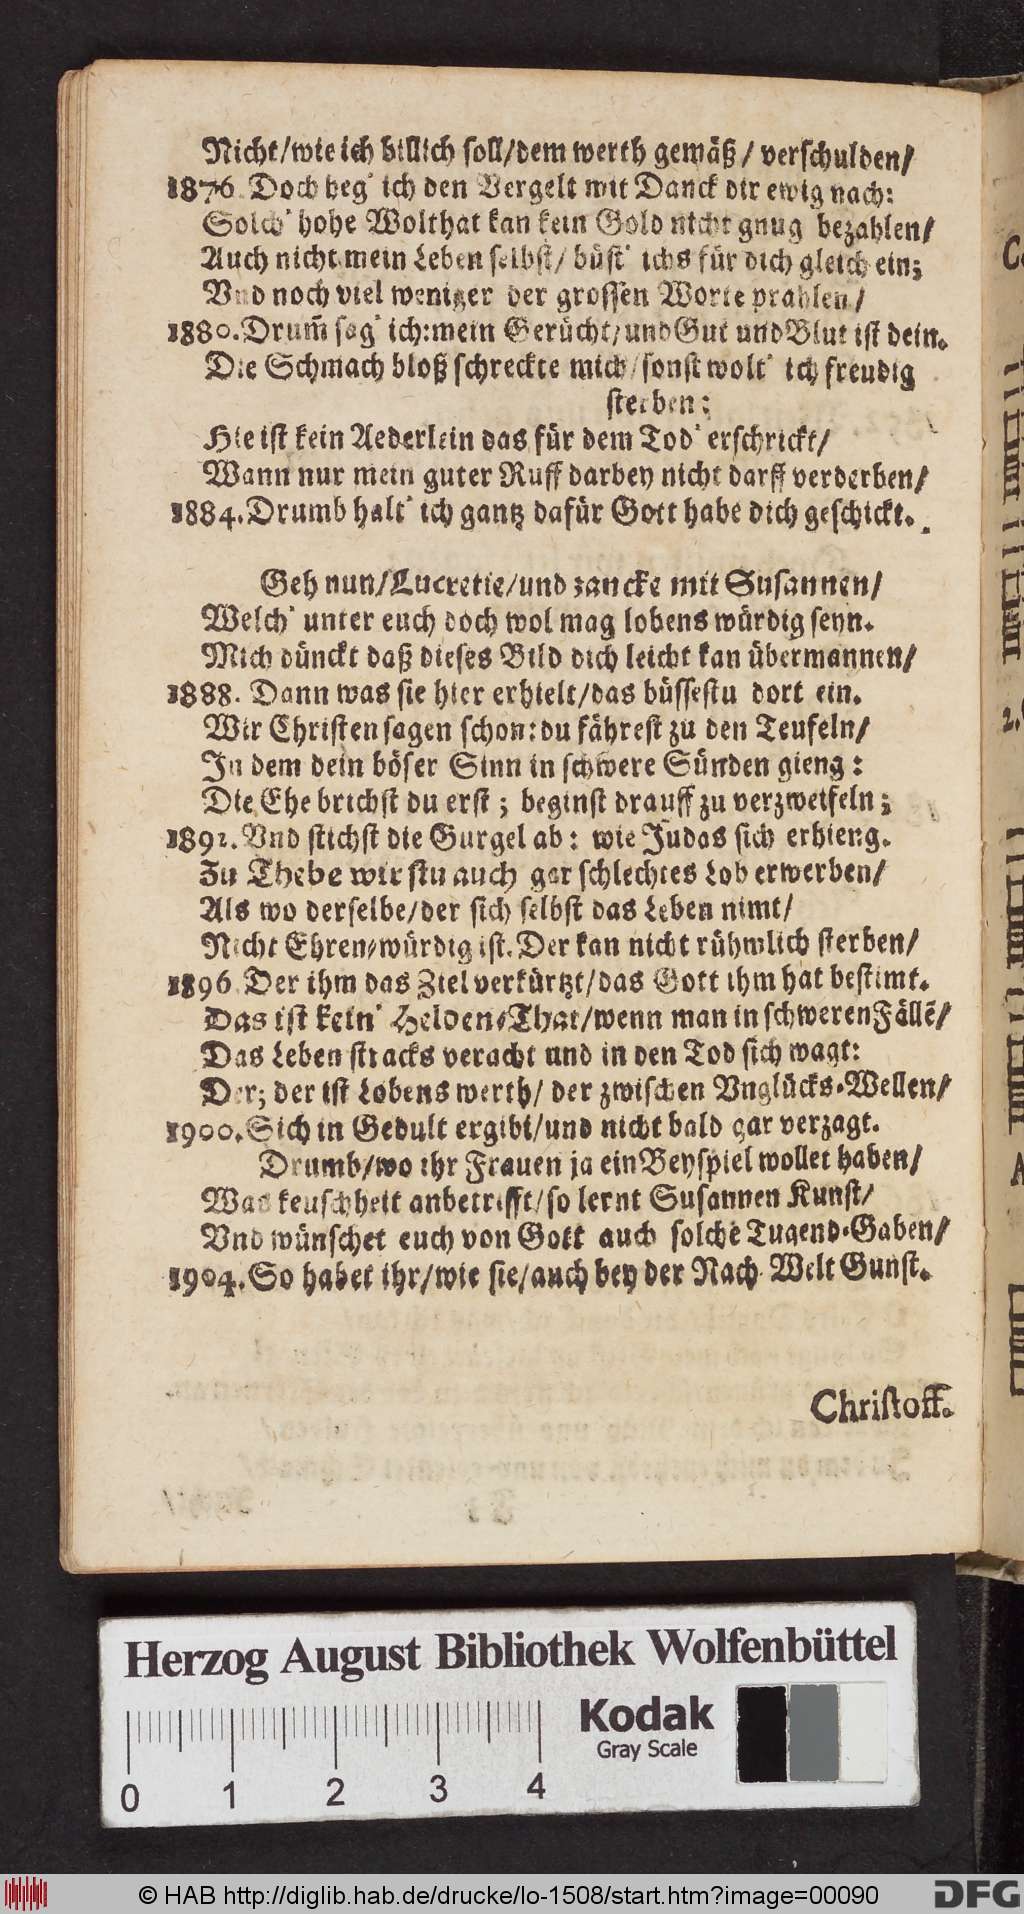 Nicht/wie ich billich soll/dem werth gemäß/ verschulden/
1876. Doch heg' ich den Vergelt mit Danck dir ewig nach:
Solch' hohe Wolthat kan kein Gold nicht gnug bezahlen/
Auch nicht mein Leben selbst/ büst' ichs für dich gleich ein;
Vnd noch viel weniger der grossen Worte prahlen/
1880. Drum̃ sag' ich: mein Gerücht/und Gut und Blut ist dein.
Die Schmach bloß schreckte mich/sonst wolt' ich freudig
sterben:
Hie ist kein Aederlein das für dem Tod' erschrickt/
Wann nur mein guter Ruff darbey nicht darff verderben/
1884. Drumb halt' ich gantz dafür Gott habe dich geschickt.
Geh nun/Lucretie/und zancke mit Susannen/
Welch' unter euch doch wol mag lobens würdig seyn.
Mich dünckt daß dieses Bild dich leicht kan übermannen/
1888. Dann was sie hier erhielt/das büssestu dort ein.
Wir Christen sagen schon: du fährest zu den Teufeln/
In dem dein böser Sinn in schwere Sünden gieng:
Die Ehe brichst du erst; beginst drauff zu verzweifeln;
1892. Vnd stichst die Gurgel ab: wie Judas sich erhieng.
Zu Thebe wirstu auch gar schlechtes Lob erwerben/
Als wo derselbe/der sich selbst das Leben nimt/
Nicht Ehren-würdig ist. Der kan nicht rühmlich sterben/
1896. Der ihm das Ziel verkürtzt/das Gott ihm hat bestimt.
Das ist kein' Helden-That/wenn man in schweren Fällē/
Das Leben stracks veracht und in den Tod sich wagt:
Der; der ist Lobens werth/ der zwischen Vnglücks-Wellen/
1900. Sich in Gedult ergibt/und nicht bald gar verzagt.
Drumb/wo ihr Frauen ja ein Beyspiel wollet haben/
Was keuschheit anbetrifft/so lernt Susannen Kunst/
Vnd wünschet euch von Gott auch solche Tugend-Gaben/
1904. So habet ihr/wie sie/auch bey der Nach-Welt Gunst.
Christoff.
Herzog August Bibliothek Wolfenbüttel
Kodak
Gray Scale
0 1 2 3 4
© HAB http://diglib.hab.de/drucke/lo-1508/start.htm?image=00090
DFG